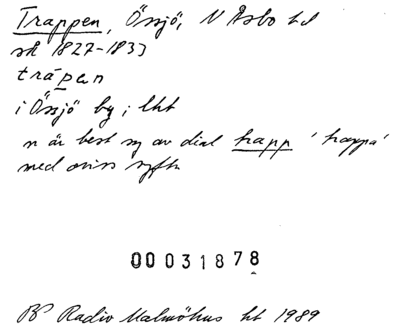 Trappen, Össjö, N Åsbo hd
sk 1827-1833
trápen
i Össjö by; lht
n är best sg av dial trapp 'trappa'
med oviss syftn
00031878
BP Radio Malmöhus ht 1989